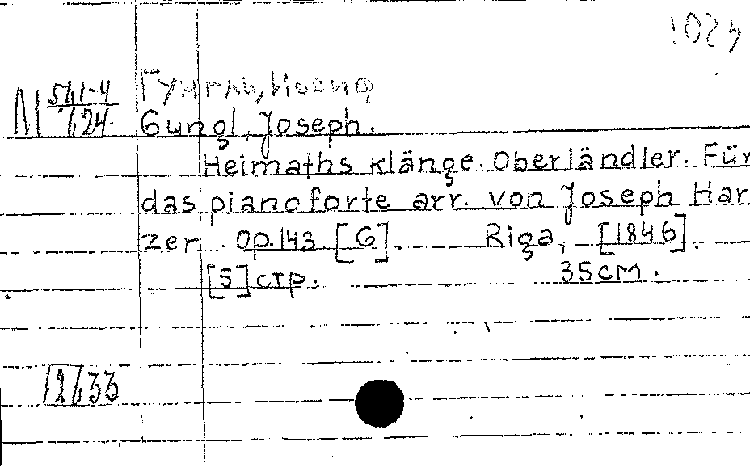 М 561-4/124
Гунгль, Иосиф
Gungl, Joseph.
Heimaths klänge. Oberländler. Für
das pianoforte arr. von Joseph Har
zer. Op.143 [G]. Riga, [1846].
[5] стр. 35см.
12633